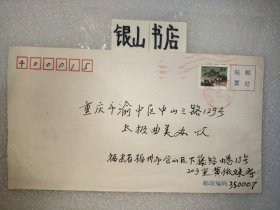 银山书店
400015
贴邮
票处
重庆市渝中区中山三路129号
太极曲美收
福建省福州市仓山区下藤路
203室
邮政编码 350007